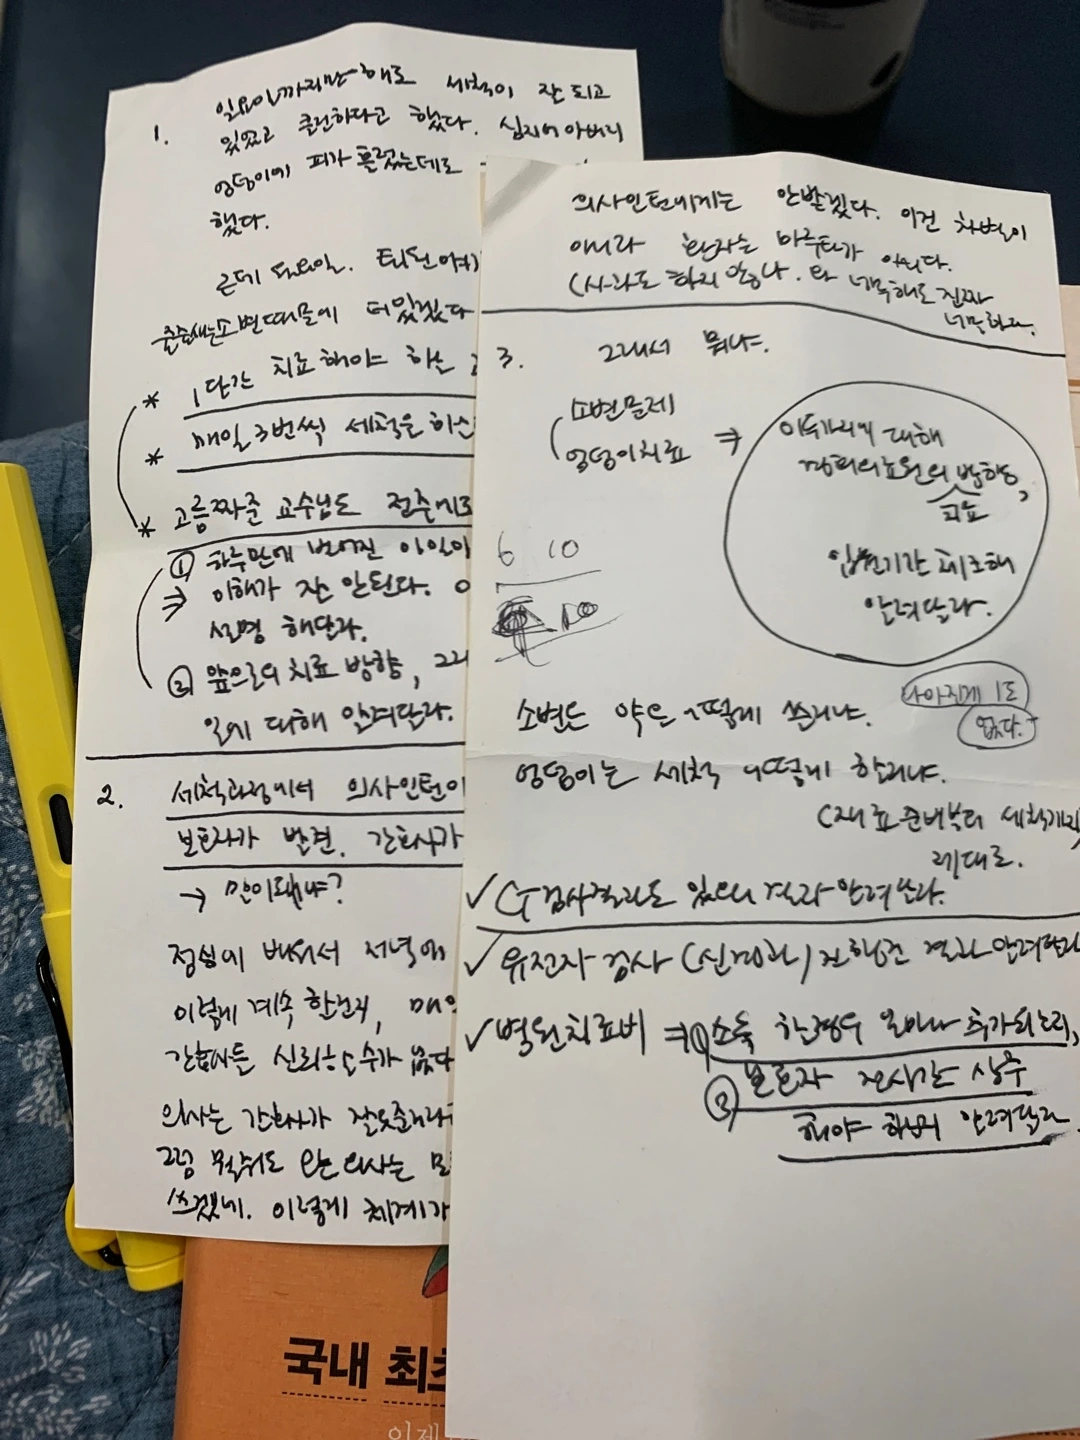 1. 일요일까지만 해도 세척이 잘 되고
있었고 클린하다고 했다. 심지어 아버지
엉덩이에 피가 흘렀는데도
했다.
근데 토요일. 퇴원 여기
줄줄새는소변때문에 더있겠다
* 1단간 치료해야 하는
* 매일 3번씩 세척을 하신
* 고름짜준 교수님도 전준에로
① 하루만에 벌어진 이 일이
⇒ 이해가 잘 안된다.
설명 해달라.
② 앞으로의 치료 방향, 그리
일에 대해 알려달라.
2. 세척과정에서 의사인턴이
보호자가 발견. 간호사가
→ 말이돼냐?
점심에 배워서 저녁에
이렇게 계속 한건지, 매일
간호사든 신뢰할수가 없다
의사는 간호사가 잘못준거라
그럼 뭘줘도 의사는 모
쓰겠네. 이렇게 체계가
의사인턴에게는 안받겠다. 이건 차별이
아니라 환자는 마루타가 아니다.
(사과도 하지 않나. 와 너무해도 진짜
너무하다.
3. 그래서 뭐냐.
소변문제
엉덩이치료 ⇒
이두가지에 대해
의료원의 방향,
치료
입원기간 체크해
알려달라.
6 10
10
나아진게 1도
없다.
소변은 약은 어떻게 쓸거냐.
엉덩이는 세척 어떻게 할거냐.
(재료준비부터 세척까지
제대로.
✓ CT검사결과도 있으니 결과 알려달라.
✓ 유전자 검사 (신경과) 진행건 결과 알려달라
✓ 병원치료비 ⇒ ① 소독 한경우 얼마나 추가되는지,
② 보호자 전시간 상주
해야 하는지 알려달라.
국내 최초
이제